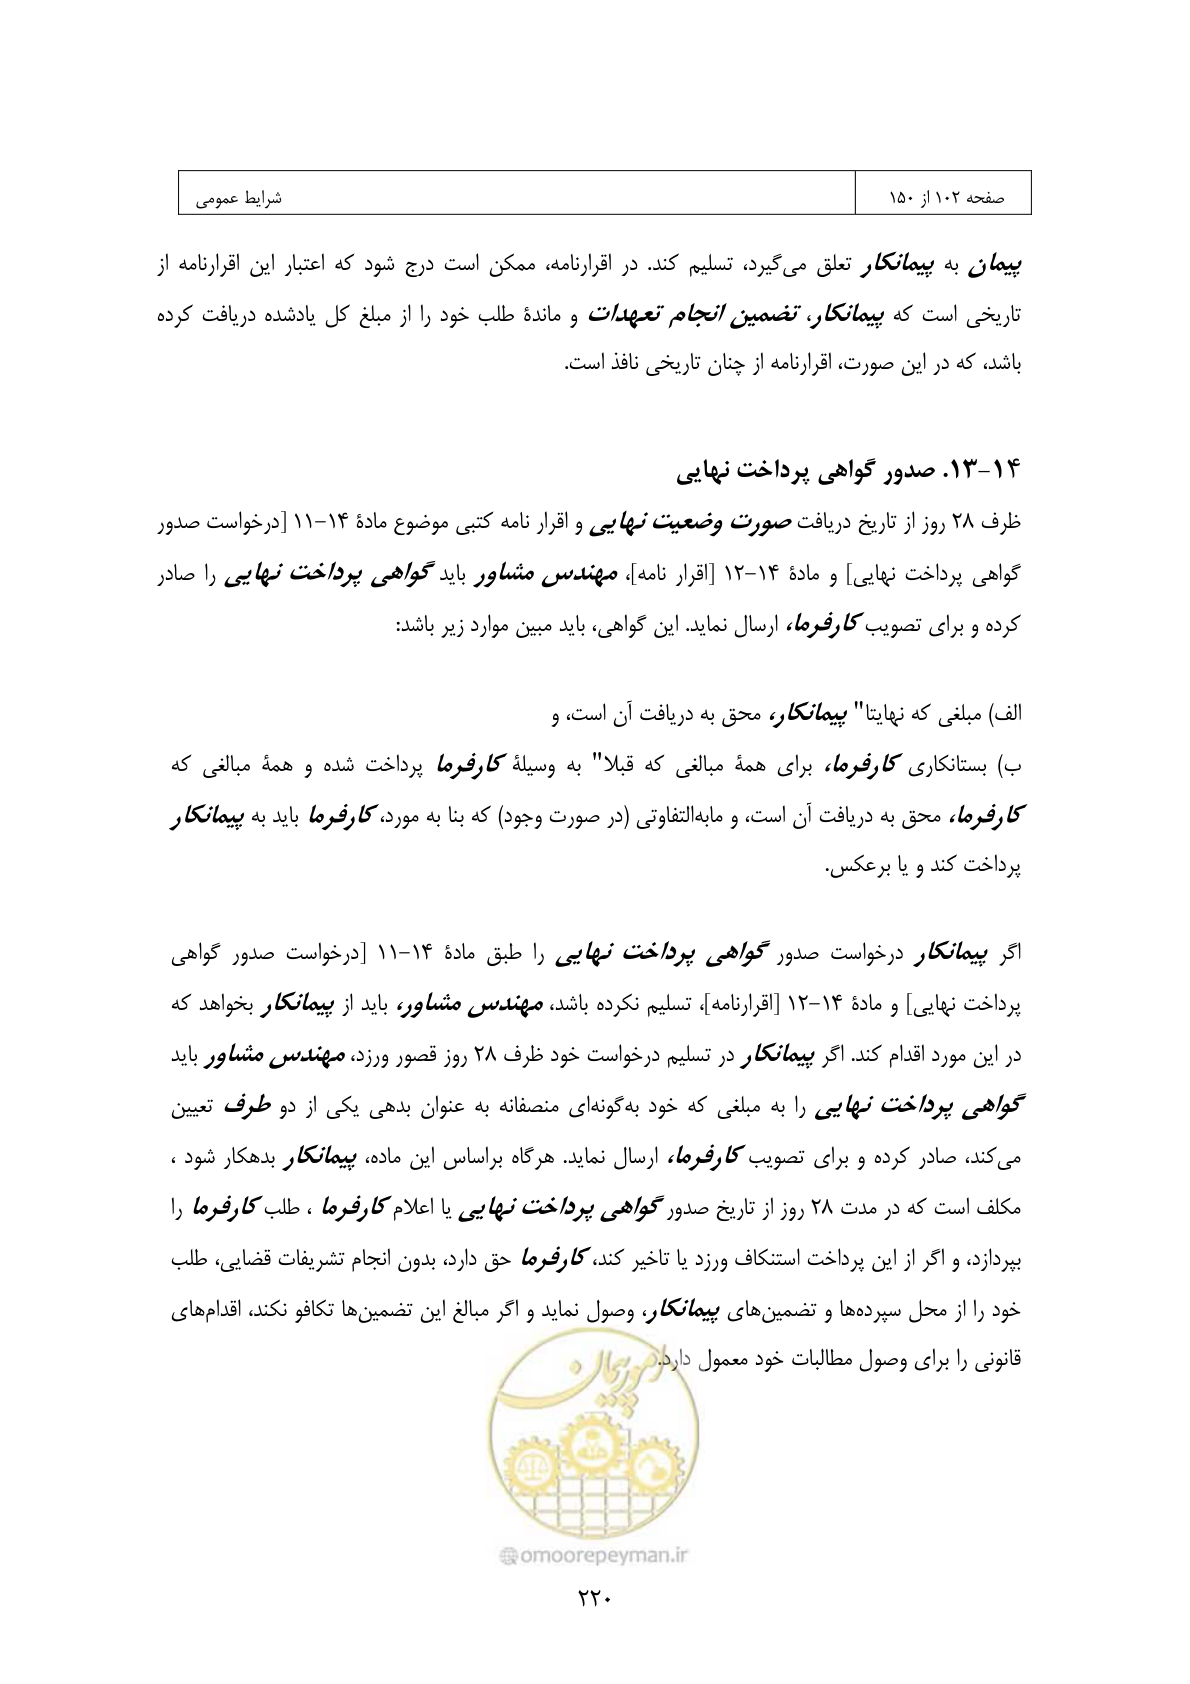 صفحه ۱۰۲ از ۱۵۰
شرایط عمومی
پیمان به پیمانکار تعلق می‌گیرد، تسلیم کند. در اقرارنامه، ممکن است درج شود که اعتبار این اقرارنامه از
تاریخی است که پیمانکار، تضمین انجام تعهدات و ماندۀ طلب خود را از مبلغ کل یادشده دریافت کرده
باشد، که در این صورت، اقرارنامه از چنان تاریخی نافذ است.
۱۴-۱۳. صدور گواهی پرداخت نهایی
ظرف ۲۸ روز از تاریخ دریافت صورت وضعیت نهایی و اقرار نامه کتبی موضوع مادۀ ۱۴-۱۱ [درخواست صدور
گواهی پرداخت نهایی] و مادۀ ۱۴-۱۲ [اقرار نامه]، مهندس مشاور باید گواهی پرداخت نهایی را صادر
کرده و برای تصویب کارفرما، ارسال نماید. این گواهی، باید مبین موارد زیر باشد:
الف) مبلغی که نهایتا" پیمانکار، محق به دریافت آن است، و
ب) بستانکاری کارفرما، برای همۀ مبالغی که قبلا" به وسیلۀ کارفرما پرداخت شده و همۀ مبالغی که
کارفرما، محق به دریافت آن است، و مابه‌التفاوتی (در صورت وجود) که بنا به مورد، کارفرما باید به پیمانکار
پرداخت کند و یا برعکس.
اگر پیمانکار درخواست صدور گواهی پرداخت نهایی را طبق مادۀ ۱۴-۱۱ [درخواست صدور گواهی
پرداخت نهایی] و مادۀ ۱۴-۱۲ [اقرارنامه]، تسلیم نکرده باشد، مهندس مشاور، باید از پیمانکار بخواهد که
در این مورد اقدام کند. اگر پیمانکار در تسلیم درخواست خود ظرف ۲۸ روز قصور ورزد، مهندس مشاور باید
گواهی پرداخت نهایی را به مبلغی که خود به‌گونه‌ای منصفانه به عنوان بدهی یکی از دو طرف تعیین
می‌کند، صادر کرده و برای تصویب کارفرما، ارسال نماید. هرگاه براساس این ماده، پیمانکار بدهکار شود ،
مکلف است که در مدت ۲۸ روز از تاریخ صدور گواهی پرداخت نهایی یا اعلام کارفرما ، طلب کارفرما را
بپردازد، و اگر از این پرداخت استنکاف ورزد یا تاخیر کند، کارفرما حق دارد، بدون انجام تشریفات قضایی، طلب
خود را از محل سپرده‌ها و تضمین‌های پیمانکار، وصول نماید و اگر مبالغ این تضمین‌ها تکافو نکند، اقدام‌های
قانونی را برای وصول مطالبات خود معمول دارد.
امور پیمان
omoorepeyman.ir
۲۲۰